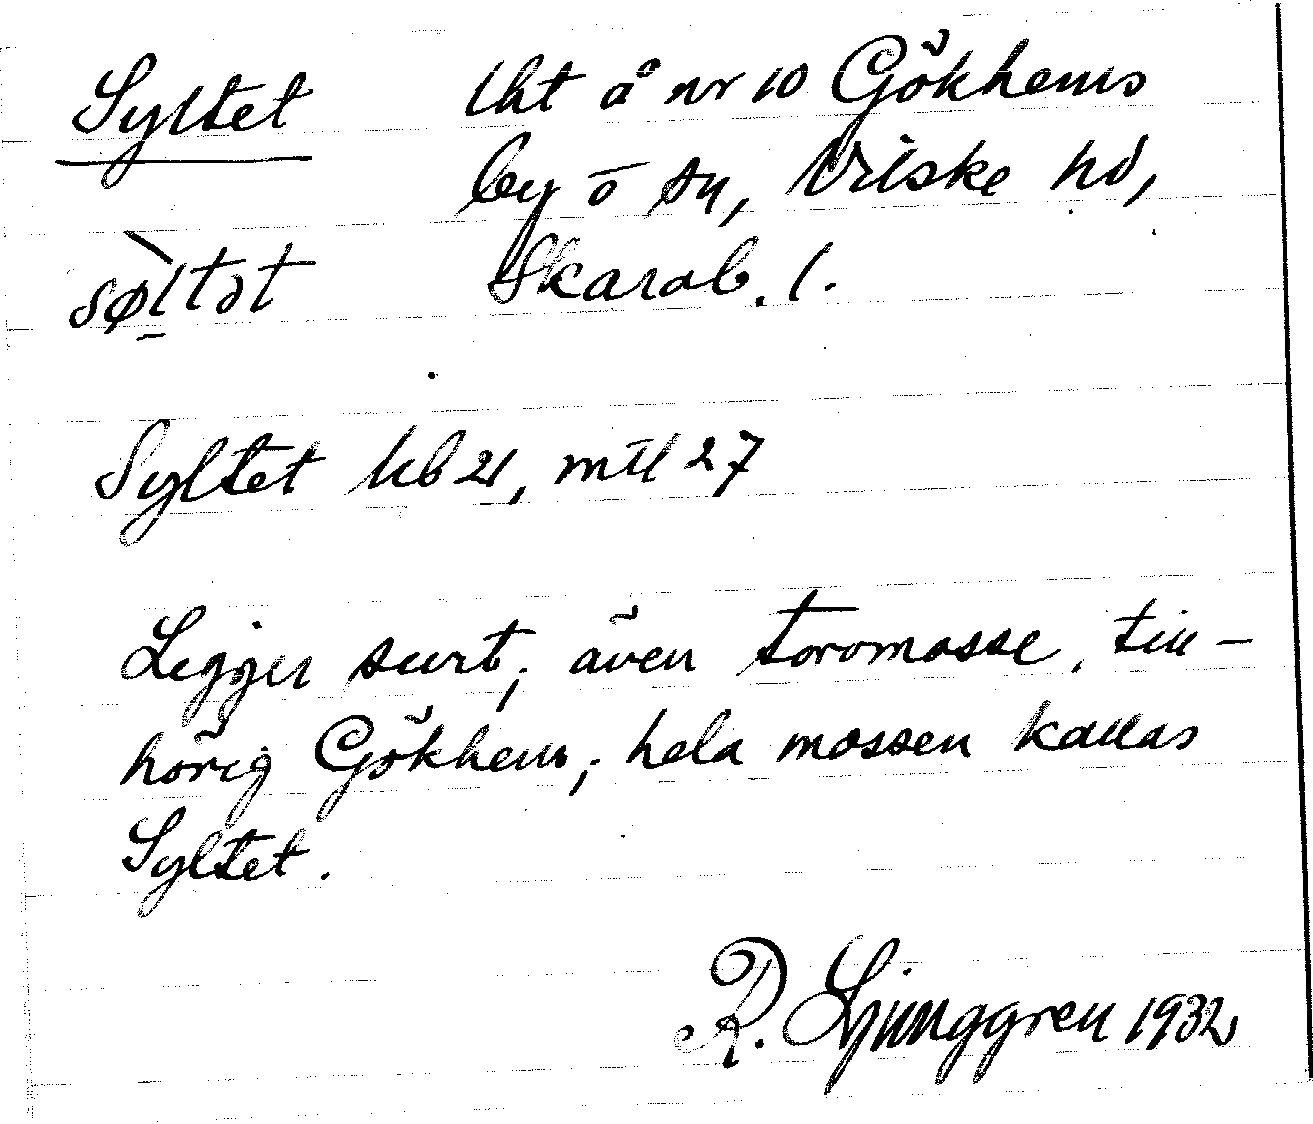 Syltet lht å nr 10 Gökhems
by o sn, Vilske hd,
sø̀ltət Skarab. l.
Syltet kb 21, mtl 27
Ligger surt; även torvmosse, till-
hörig Gökhem; hela mossen kallas
Syltet.
R. Ljunggren 1932